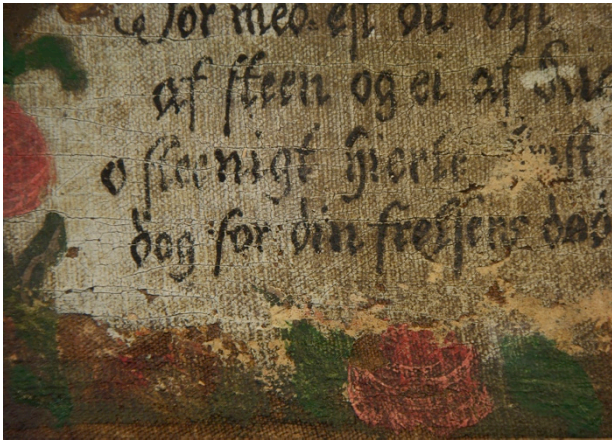 for med: est du
af steen og ei af
o steenigt hierte
dog for din frelsers død